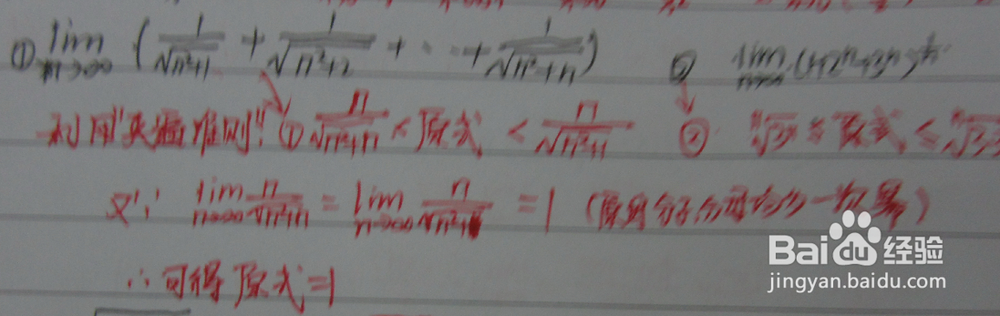 ① lim n→∞ (1/√n²+1 + 1/√n²+2 + ··· + 1/√n²+n) ② lim n→∞ (1+2ⁿ+3ⁿ)^1/n
利用"夹逼准则": ① n/√n²+n < 原式 < n/√n²+1 ② ⁿ√3ⁿ ≤ 原式 ≤
又∵ lim n→∞ n/√n²+n = lim n→∞ n/√n²+1 = 1 (
∴可得原式=1
Baidu经验
jingyan.baidu.com